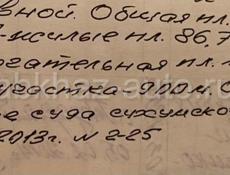 вной. Общая пл.
жилые пл. 86,7
гательная пл.
участка - 900 м.
е суда сухумско
2013г. N 2-25